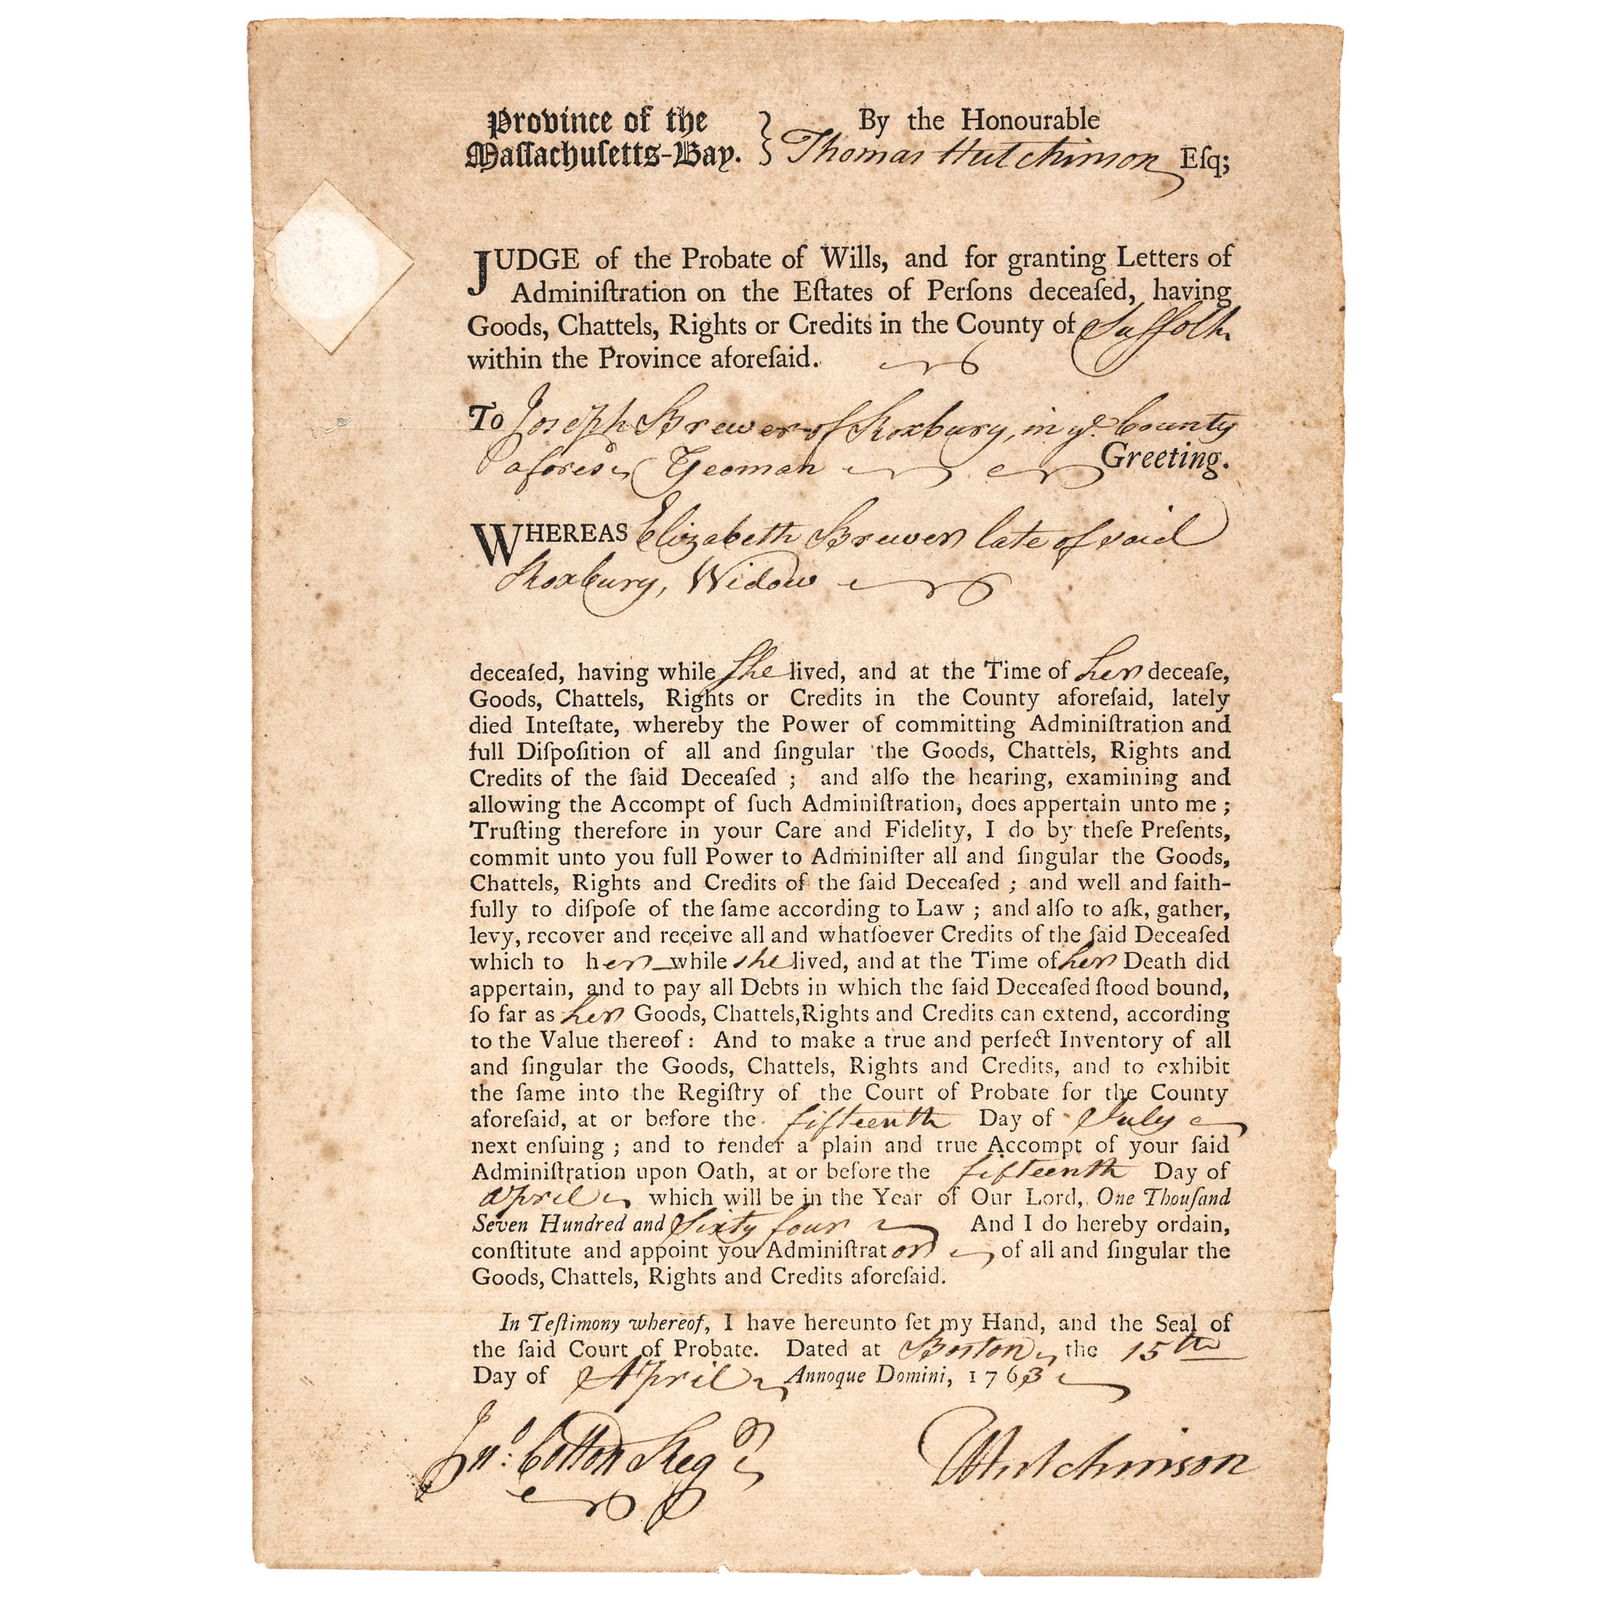 Province of the } By the Honourable
Maſſachuſetts-Bay. } Thomas Hutchinson Eſq;
JUDGE of the Probate of Wills, and for granting Letters of
Adminiſtration on the Eſtates of Perſons deceaſed, having
Goods, Chattels, Rights or Credits in the County of Suffolk
within the Province aforeſaid.
To Joseph Brewer of Roxbury, in ye. County
aforesd. Yeoman Greeting.
WHEREAS Elizabeth Brewer late of said
Roxbury, Widow
deceaſed, having while She lived, and at the Time of her deceaſe,
Goods, Chattels, Rights or Credits in the County aforeſaid, lately
died Inteſtate, whereby the Power of committing Adminiſtration and
full Diſpoſition of all and ſingular the Goods, Chattels, Rights and
Credits of the ſaid Deceaſed ; and alſo the hearing, examining and
allowing the Accompt of ſuch Adminiſtration, does appertain unto me ;
Truſting therefore in your Care and Fidelity, I do by theſe Preſents,
commit unto you full Power to Adminiſter all and ſingular the Goods,
Chattels, Rights and Credits of the ſaid Deceaſed ; and well and faith-
fully to diſpoſe of the ſame according to Law ; and alſo to aſk, gather,
levy, recover and receive all and whatſoever Credits of the ſaid Deceaſed
which to her while she lived, and at the Time of her Death did
appertain, and to pay all Debts in which the ſaid Deceaſed ſtood bound,
ſo far as her Goods, Chattels, Rights and Credits can extend, according
to the Value thereof : And to make a true and perfect Inventory of all
and ſingular the Goods, Chattels, Rights and Credits, and to exhibit
the ſame into the Regiſtry of the Court of Probate for the County
aforeſaid, at or before the fifteenth Day of July
next enſuing ; and to render a plain and true Accompt of your ſaid
Adminiſtration upon Oath, at or before the fifteenth Day of
April which will be in the Year of Our Lord, One Thouſand
Seven Hundred and Sixty four And I do hereby ordain,
conſtitute and appoint you Adminiſtrator of all and ſingular the
Goods, Chattels, Rights and Credits aforeſaid.
In Teſtimony whereof, I have hereunto ſet my Hand, and the Seal of
the ſaid Court of Probate. Dated at Boston the 15th
Day of April Annoque Domini, 1763
Jno. Cotton Regr T Hutchinson